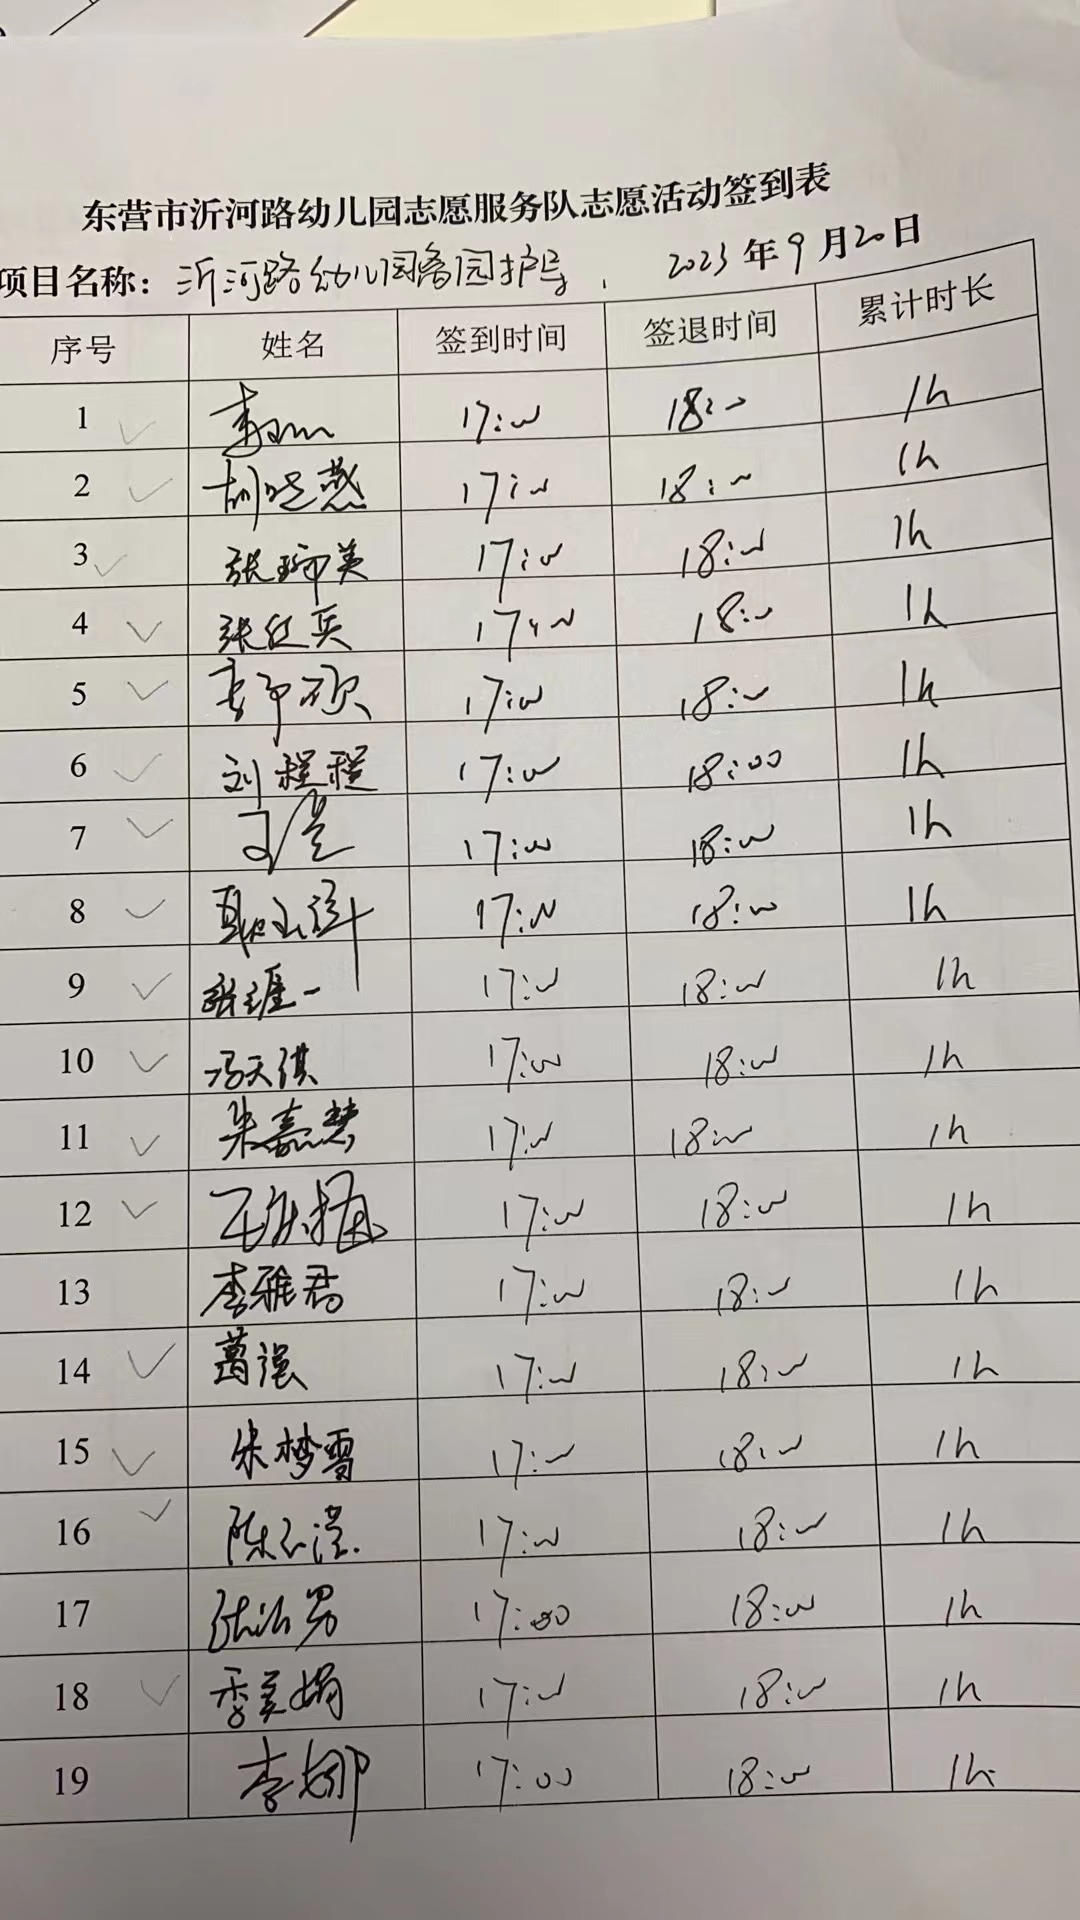 东营市沂河路幼儿园志愿服务队志愿活动签到表
项目名称：沂河路幼儿园离园护导，2023年9月20日
序号 姓名 签到时间 签退时间 累计时长
1 17:00 18:00 1h
2 胡晓燕 17:00 18:00 1h
3 张珊美 17:00 18:00 1h
4 张红兵 17:00 18:00 1h
5 17:00 18:00 1h
6 刘程程 17:00 18:00 1h
7 17:00 18:00 1h
8 17:00 18:00 1h
9 张涯一 17:00 18:00 1h
10 冯天琪 17:00 18:00 1h
11 朱嘉慧 17:00 18:00 1h
12 17:00 18:00 1h
13 李雅君 17:00 18:00 1h
14 葛强 17:00 18:00 1h
15 朱梦雪 17:00 18:00 1h
16 17:00 18:00 1h
17 17:00 18:00 1h
18 季美娟 17:00 18:00 1h
19 李娜 17:00 18:00 1h